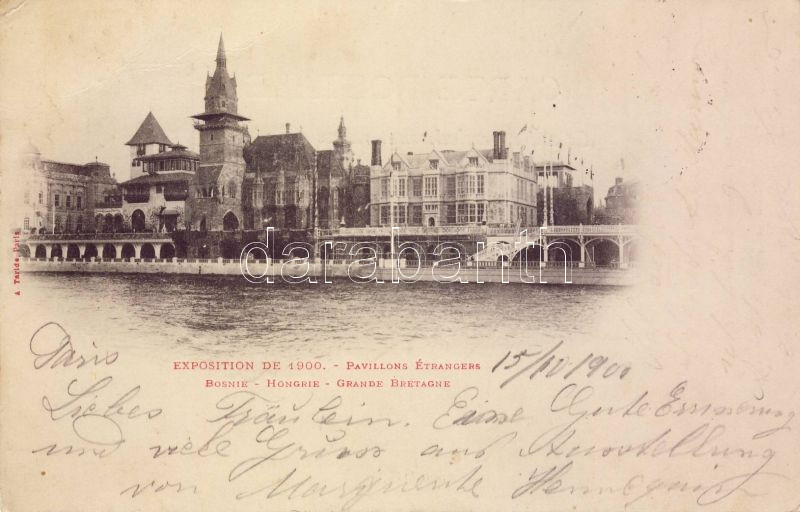 darabanth
A Taride, Paris
EXPOSITION DE 1900. - PAVILLONS ÉTRANGERS
BOSNIE - HONGRIE - GRANDE BRETAGNE
Paris 15/10 1900
Liebes Fräulein. Eine Gute Erinnerung
und viele Gruss aus Ausstellung
von Marguerite Hennequin